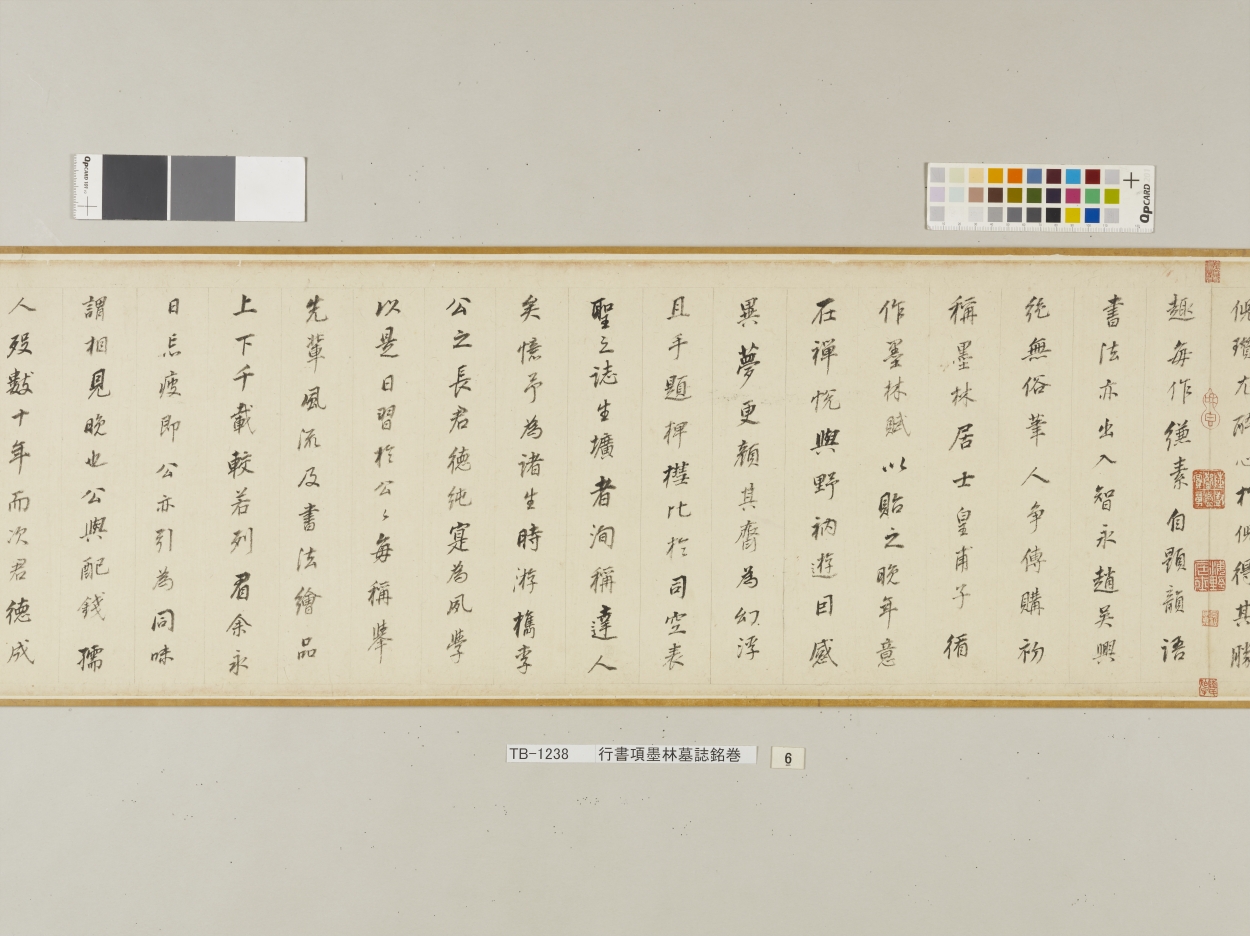 趣每作縑素自題韻語
書法亦出入智永趙吳興
絕無俗筆人爭傳購初
稱墨林居士皇甫子循
作墨林賦以貽之晚年意
在禪悅與野衲遊因感
異夢更顏其齋為幻浮
且手題椑櫬比於司空表
聖之誌生壙者洵稱達人
矣憶予為諸生時游檇李
公之長君德純寔為夙學
以是日習於公公每稱舉
先輩風流及書法繪品
上下千載較若列眉余永
日忘疲即公亦引為同味
謂相見晚也公與配錢孺
人歿數十年而次君德成
TB-1238 行書項墨林墓誌銘巻 6
QpCARD 101
QpCARD